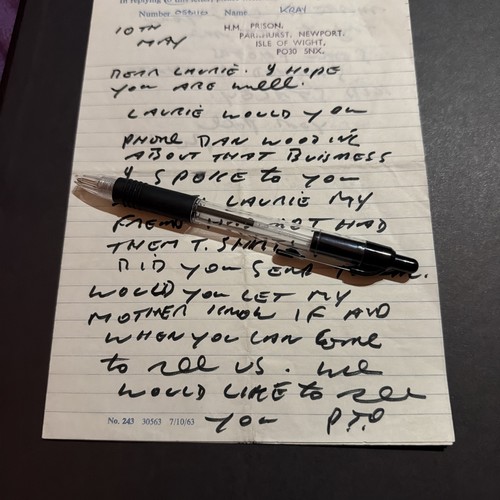 In replying to this letter, p
Number 058105 Name KRAY
10TH
MAY
H.M. PRISON,
PARKHURST, NEWPORT,
ISLE OF WIGHT,
PO30 5NX.
DEAR LAURIE. I HOPE
YOU ARE WELL.
LAURIE WOULD YOU
PHONE DAN WOOD
ABOUT THAT BUISNESS
I SPOKE TO YOU
LAURIE MY
HAD
THEM T. SHIRTS.
DID YOU SEND
WOULD YOU LET MY
MOTHER KNOW IF AND
WHEN YOU CAN COME
TO SEE US. WE
WOULD LIKE TO SEE
YOU P.T.O
No. 243 30563 7/10/63